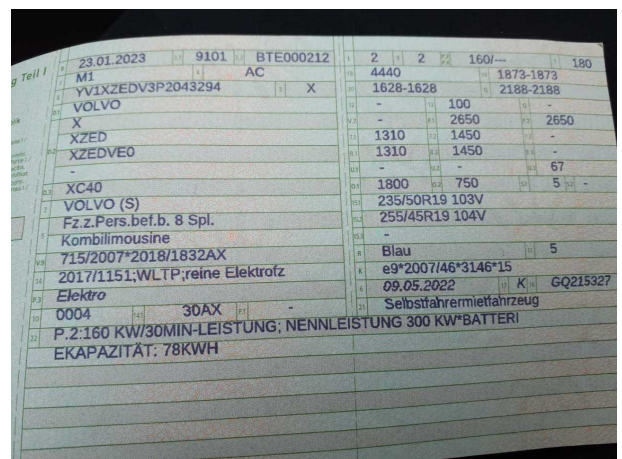 g Teil I
23.01.2023 9101 BTE000212
M1 AC
YV1XZEDV3P2043294 X
VOLVO
X
XZED
XZEDVE0
-
XC40
VOLVO (S)
Fz.z.Pers.bef.b. 8 Spl.
Kombilimousine
715/2007*2018/1832AX
2017/1151;WLTP;reine Elektrofz
Elektro
0004 30AX -
2 2 160/--- 180
4440 1873-1873
1628-1628 2188-2188
- 100 -
- 2650 2650
1310 1450 -
1310 1450 -
- - 67
1800 750 5 -
235/50R19 103V
255/45R19 104V
-
Blau 5
e9*2007/46*3146*15
09.05.2022 K GQ215327
Selbstfahrermietfahrzeug
P.2:160 KW/30MIN-LEISTUNG; NENNLEISTUNG 300 KW*BATTERI
EKAPAZITÄT: 78KWH